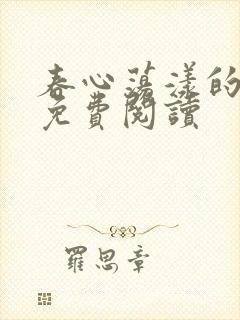 春心蕩漾的
免費閱讀
羅思章